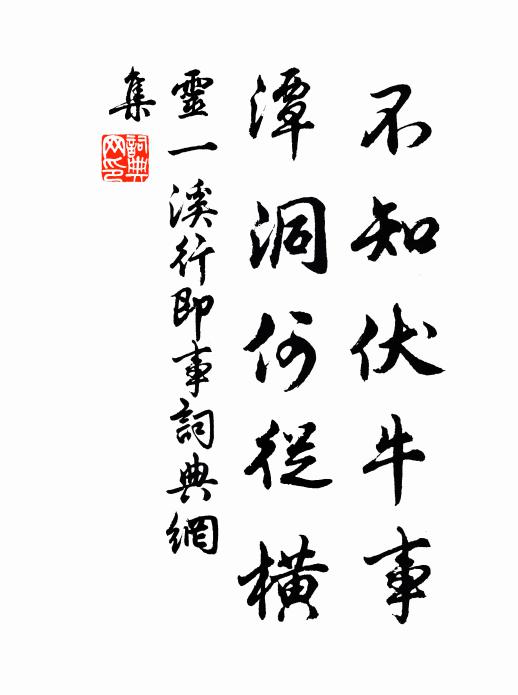 不知伏牛事
潭洞何從橫
靈一溪行即事詞典網
集
詞典網印